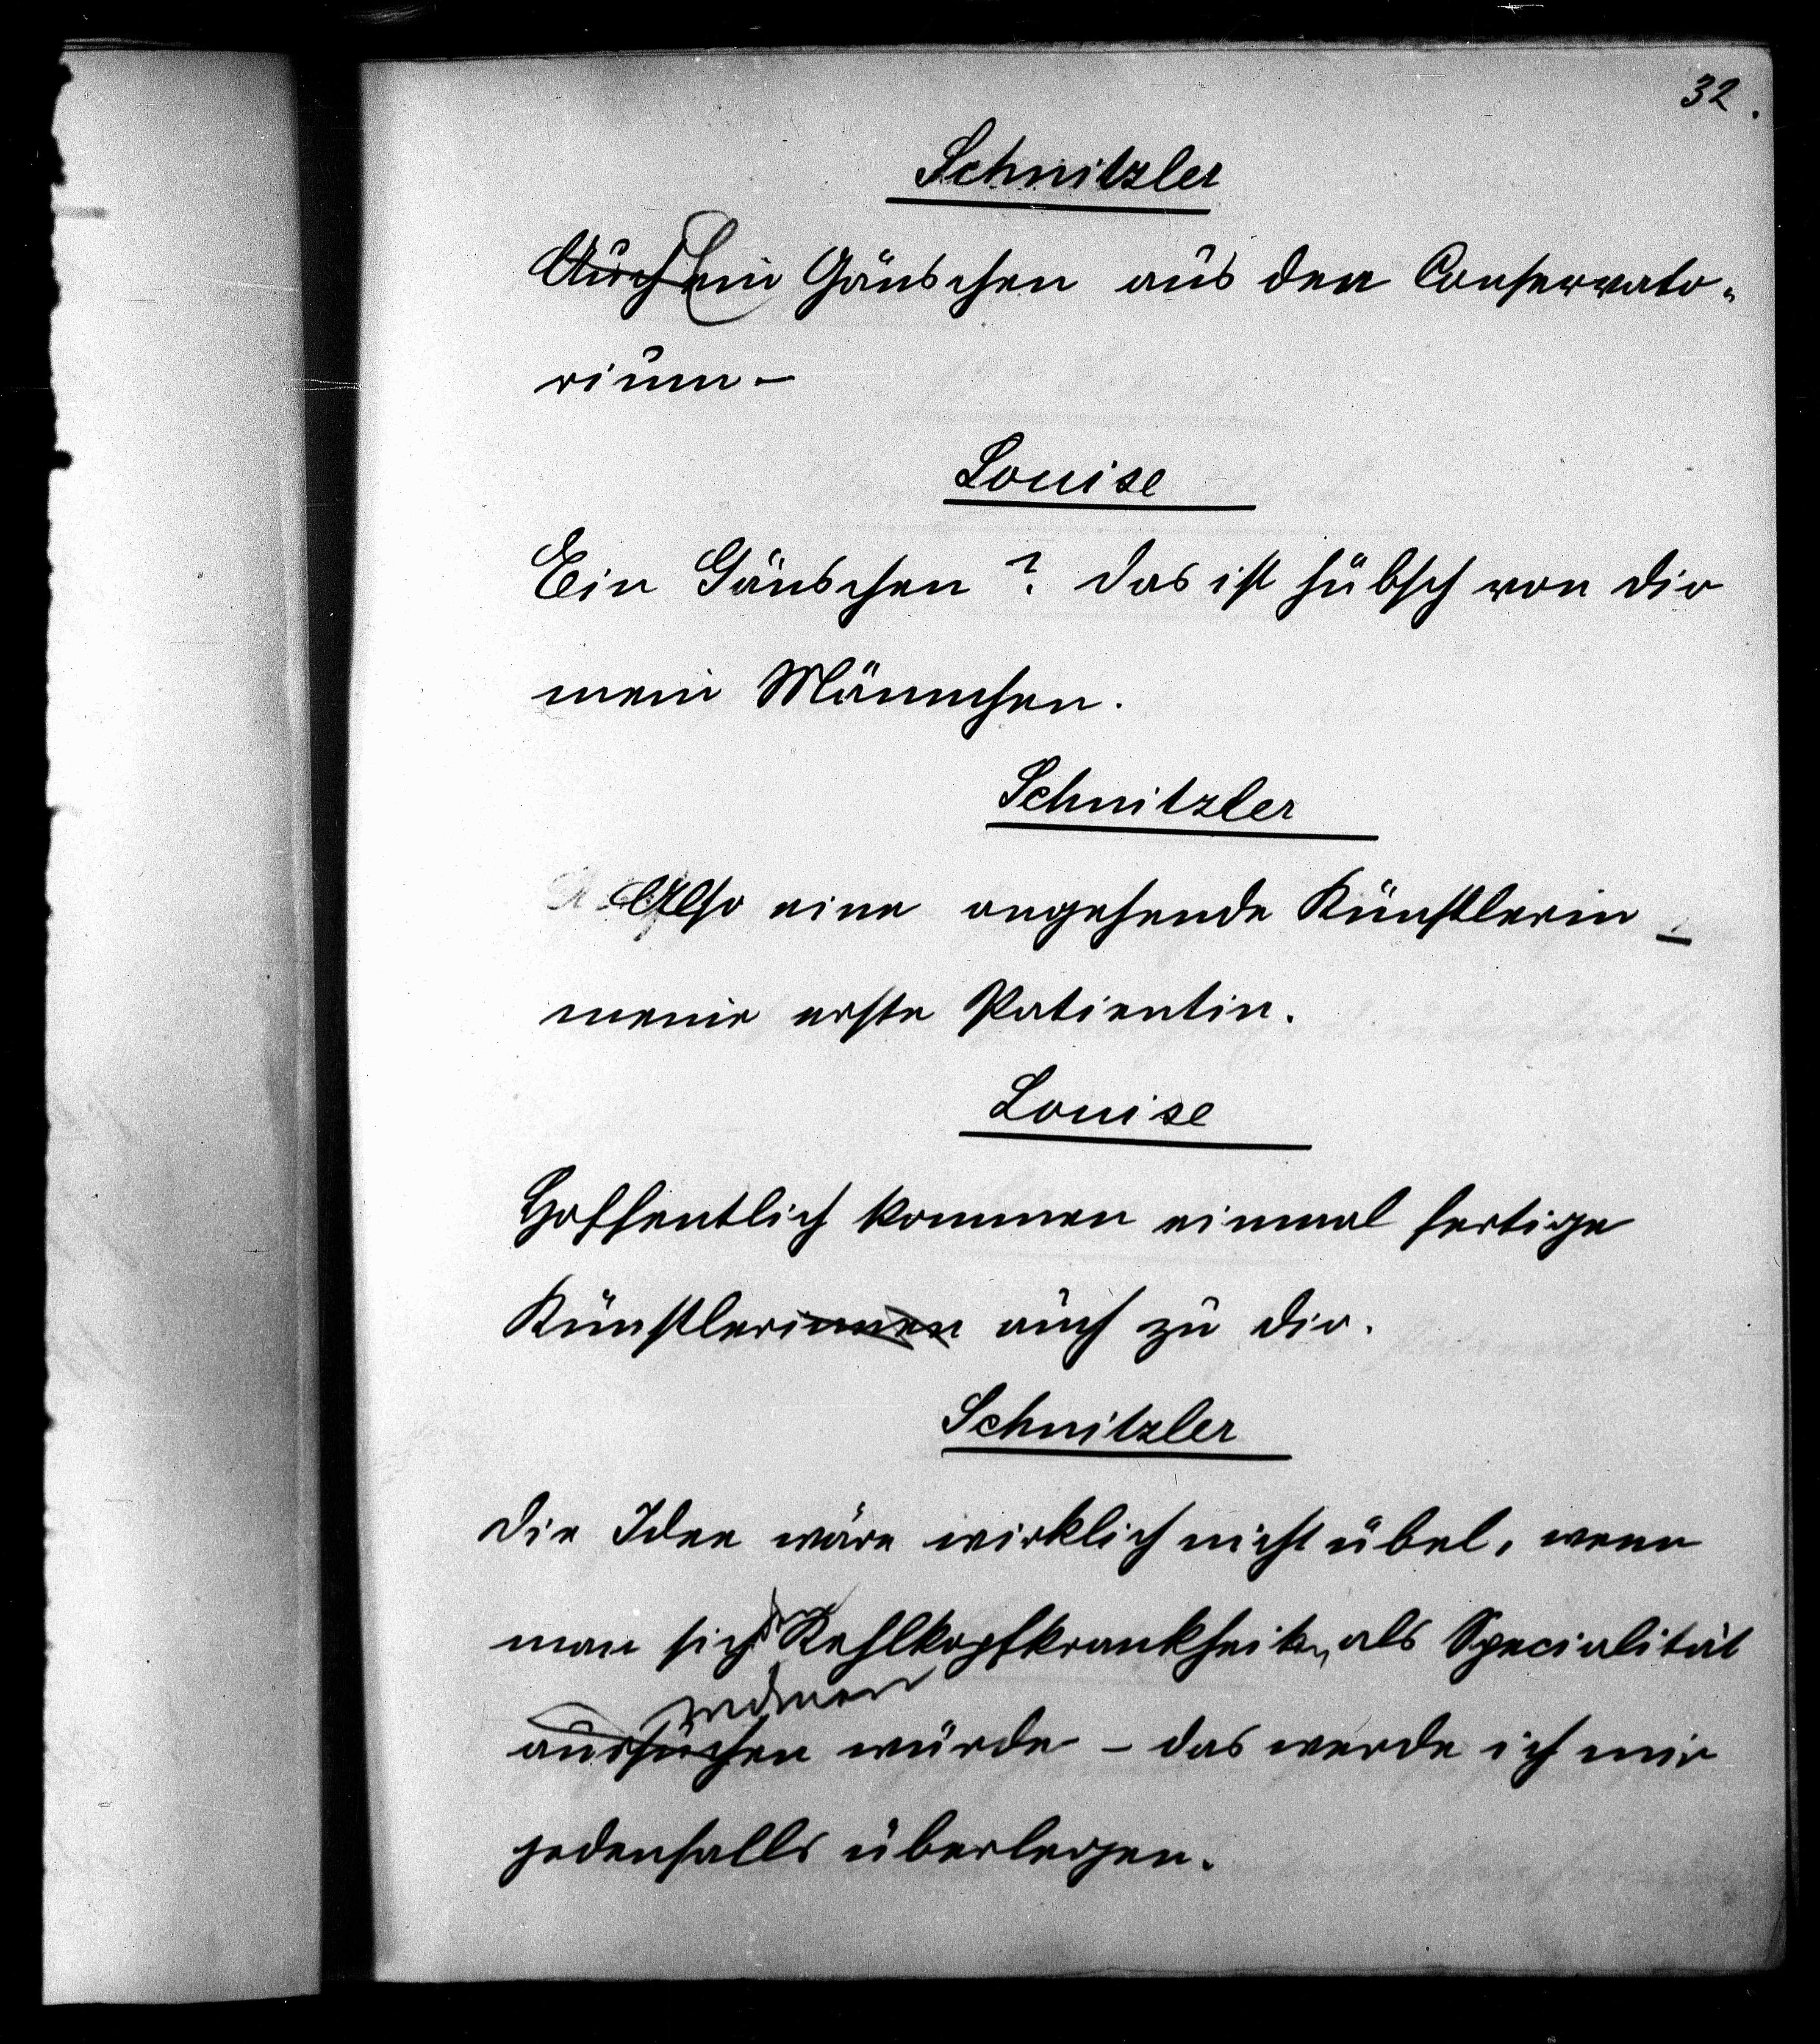 32.
Schnitzler
Ein Gänschen aus dem Conservato-
rium –
Louise
Ein Gänschen? Das ist hübsch von dir
mein Männchen.
Schnitzler
Also eine angehende Künstlerin –
meine erste Patientin.
Louise
Hoffentlich kommen einmal fertige
Künstlerinnen auch zu dir.
Schnitzler
Die Idee wäre wirklich nicht übel, wenn
man sich Kehlkopfkrankheiten als Specialität
aussuchen würde – das werde ich mir
jedenfalls überlegen.